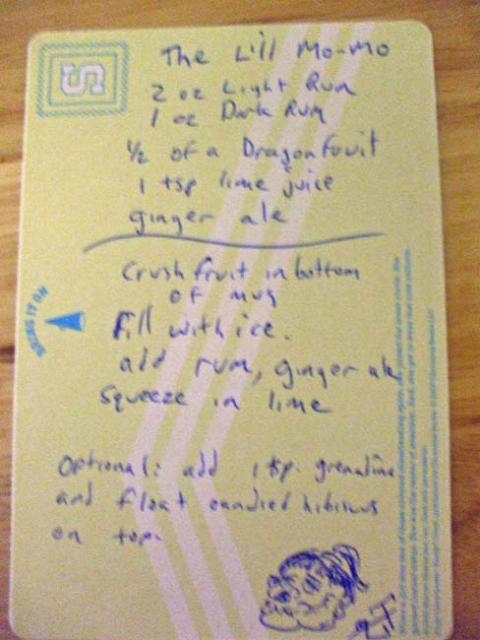 The L'il Mo-Mo
2 oz Light Rum
1 oz Dark Rum
1/2 of a Dragonfruit
1 tsp lime juice
ginger ale
Crush fruit in bottom
of mug
Fill with ice.
add rum, ginger ale
squeeze in lime
Optional: add 1 tsp. grenadine
and float candied hibiscus
on top.
BRING IT ON